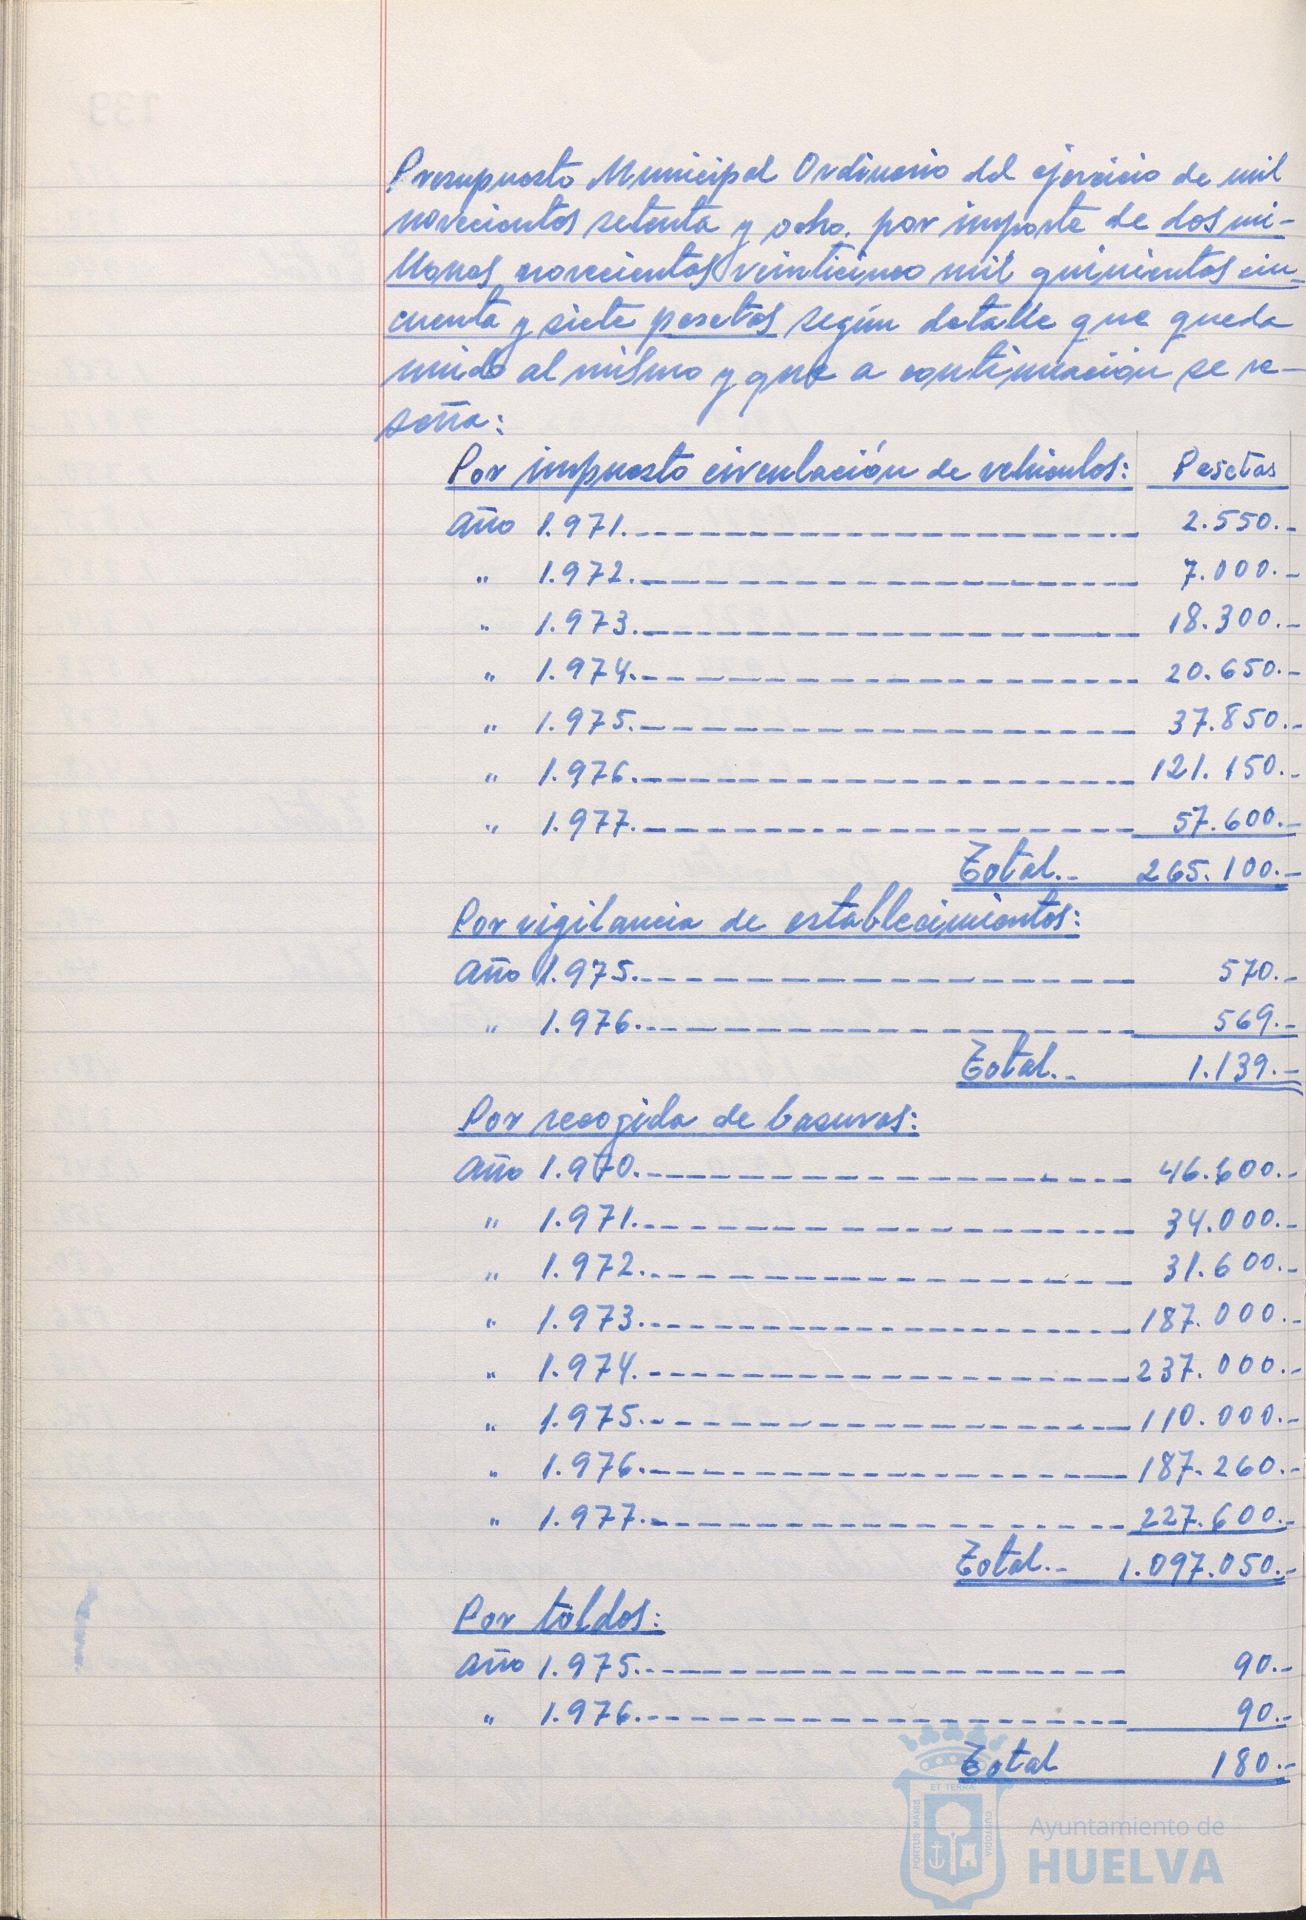 Presupuesto Municipal Ordinario del ejercicio de mil
novecientos setenta y ocho. por importe de dos mi-
llones novecientos veinticinco mil quinientos cin-
cuenta y siete pesetas según detalle que queda
unido al mismo y que a continuación se re-
seña:
Por impuesto circulación de vehículos: Pesetas
Año 1.971. 2.550.-
" 1.972. 7.000.-
" 1.973. 18.300.-
" 1.974. 20.650.-
" 1.975. 37.850.-
" 1.976. 121.150.-
" 1.977. 57.600.-
Total.- 265.100.-
Por vigilancia de establecimientos:
Año 1.975. 570.-
" 1.976. 569.-
Total.- 1.139.-
Por recogida de basuras:
Año 1.970. 46.600.-
" 1.971. 34.000.-
" 1.972. 31.600.-
" 1.973. 187.000.-
" 1.974. 237.000.-
" 1.975. 110.000.-
" 1.976. 187.260.-
" 1.977. 227.600.-
Total.- 1.097.050.-
Por toldos:
Año 1.975. 90.-
" 1.976. 90.-
Total 180.-
ET TERRA
PORTUS MARIS
CUSTODIA
Ayuntamiento de
HUELVA